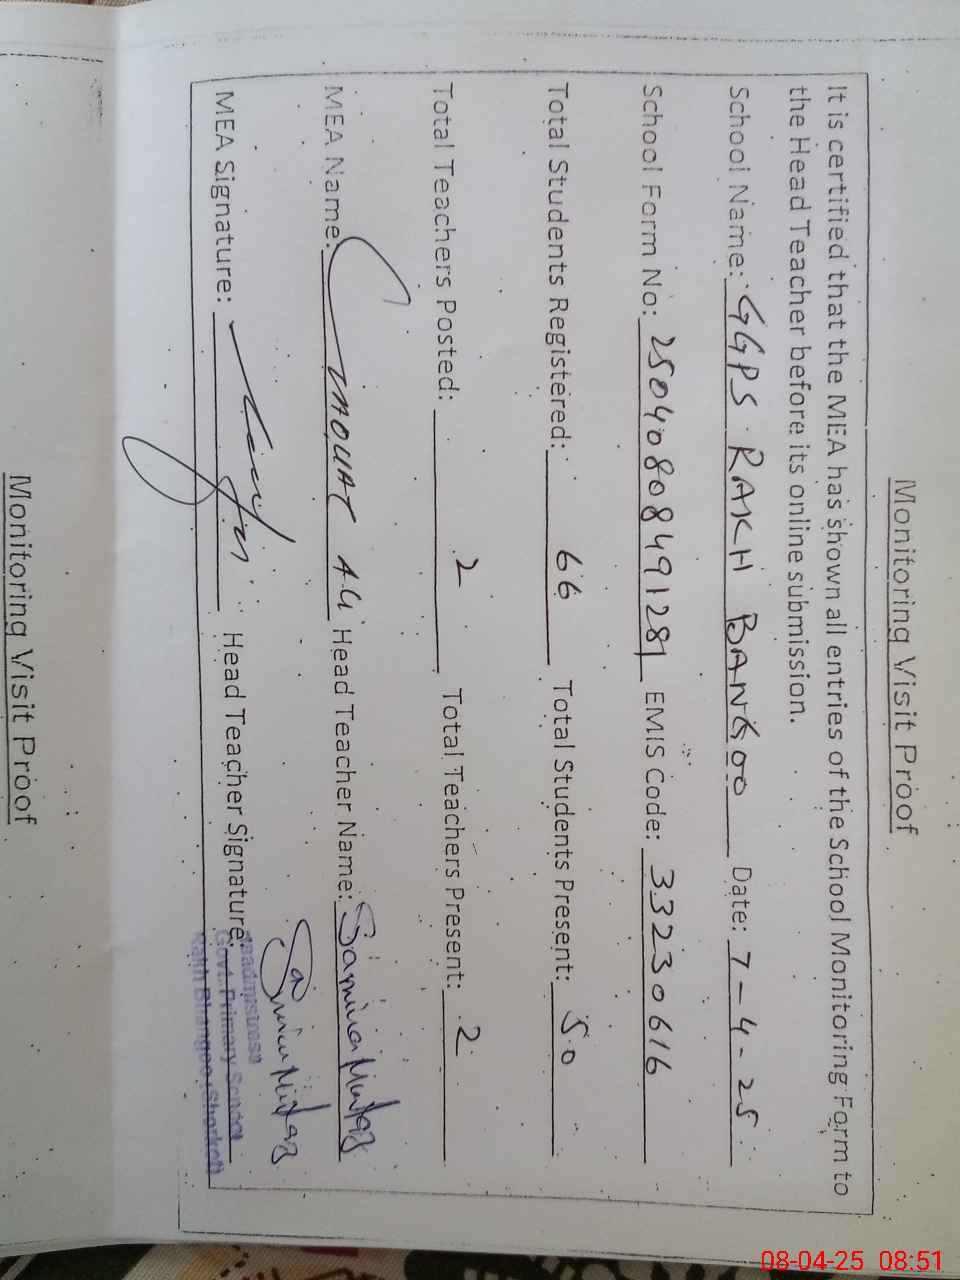 Monitoring Visit Proof
It is certified that the MEA has shown all entries of the School Monitoring Form to
the Head Teacher before its online submission.
School Name: GGPS RAKH BANGOO Date: 7-4-25
School Form No: 25040808491281 EMIS Code: 33230616
Total Students Registered: 66 Total Students Present: 50
Total Teachers Posted: 2 Total Teachers Present: 2
MEA Name: Head Teacher Name: Samina Mumtaz
MEA Signature: Head Teacher Signature: Samina Mumtaz
Headmistress
Govt. Primary School
Rakh Bhangoo (Shorkot)
Monitoring Visit Proof
08-04-25 08:51